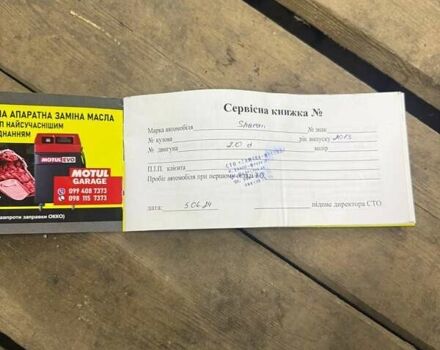 НА АПАРАТНА ЗАМІНА МАСЛА
П НАЙСУЧАСНІШИМ
ДНАННЯМ
MOTUL EVO
MOTUL
GARAGE
099 408 7373
098 115 7373
навпроти заправки ОККО)
Сервісна книжка №
Марка автомобіля Sharan № знак
№ кузова рік випуску 2013
№ двигуна 2.0 d колір
П.І.П. клієнта
Пробіг автомобіля при першому
дата: 5.06.24 підпис директора СТО